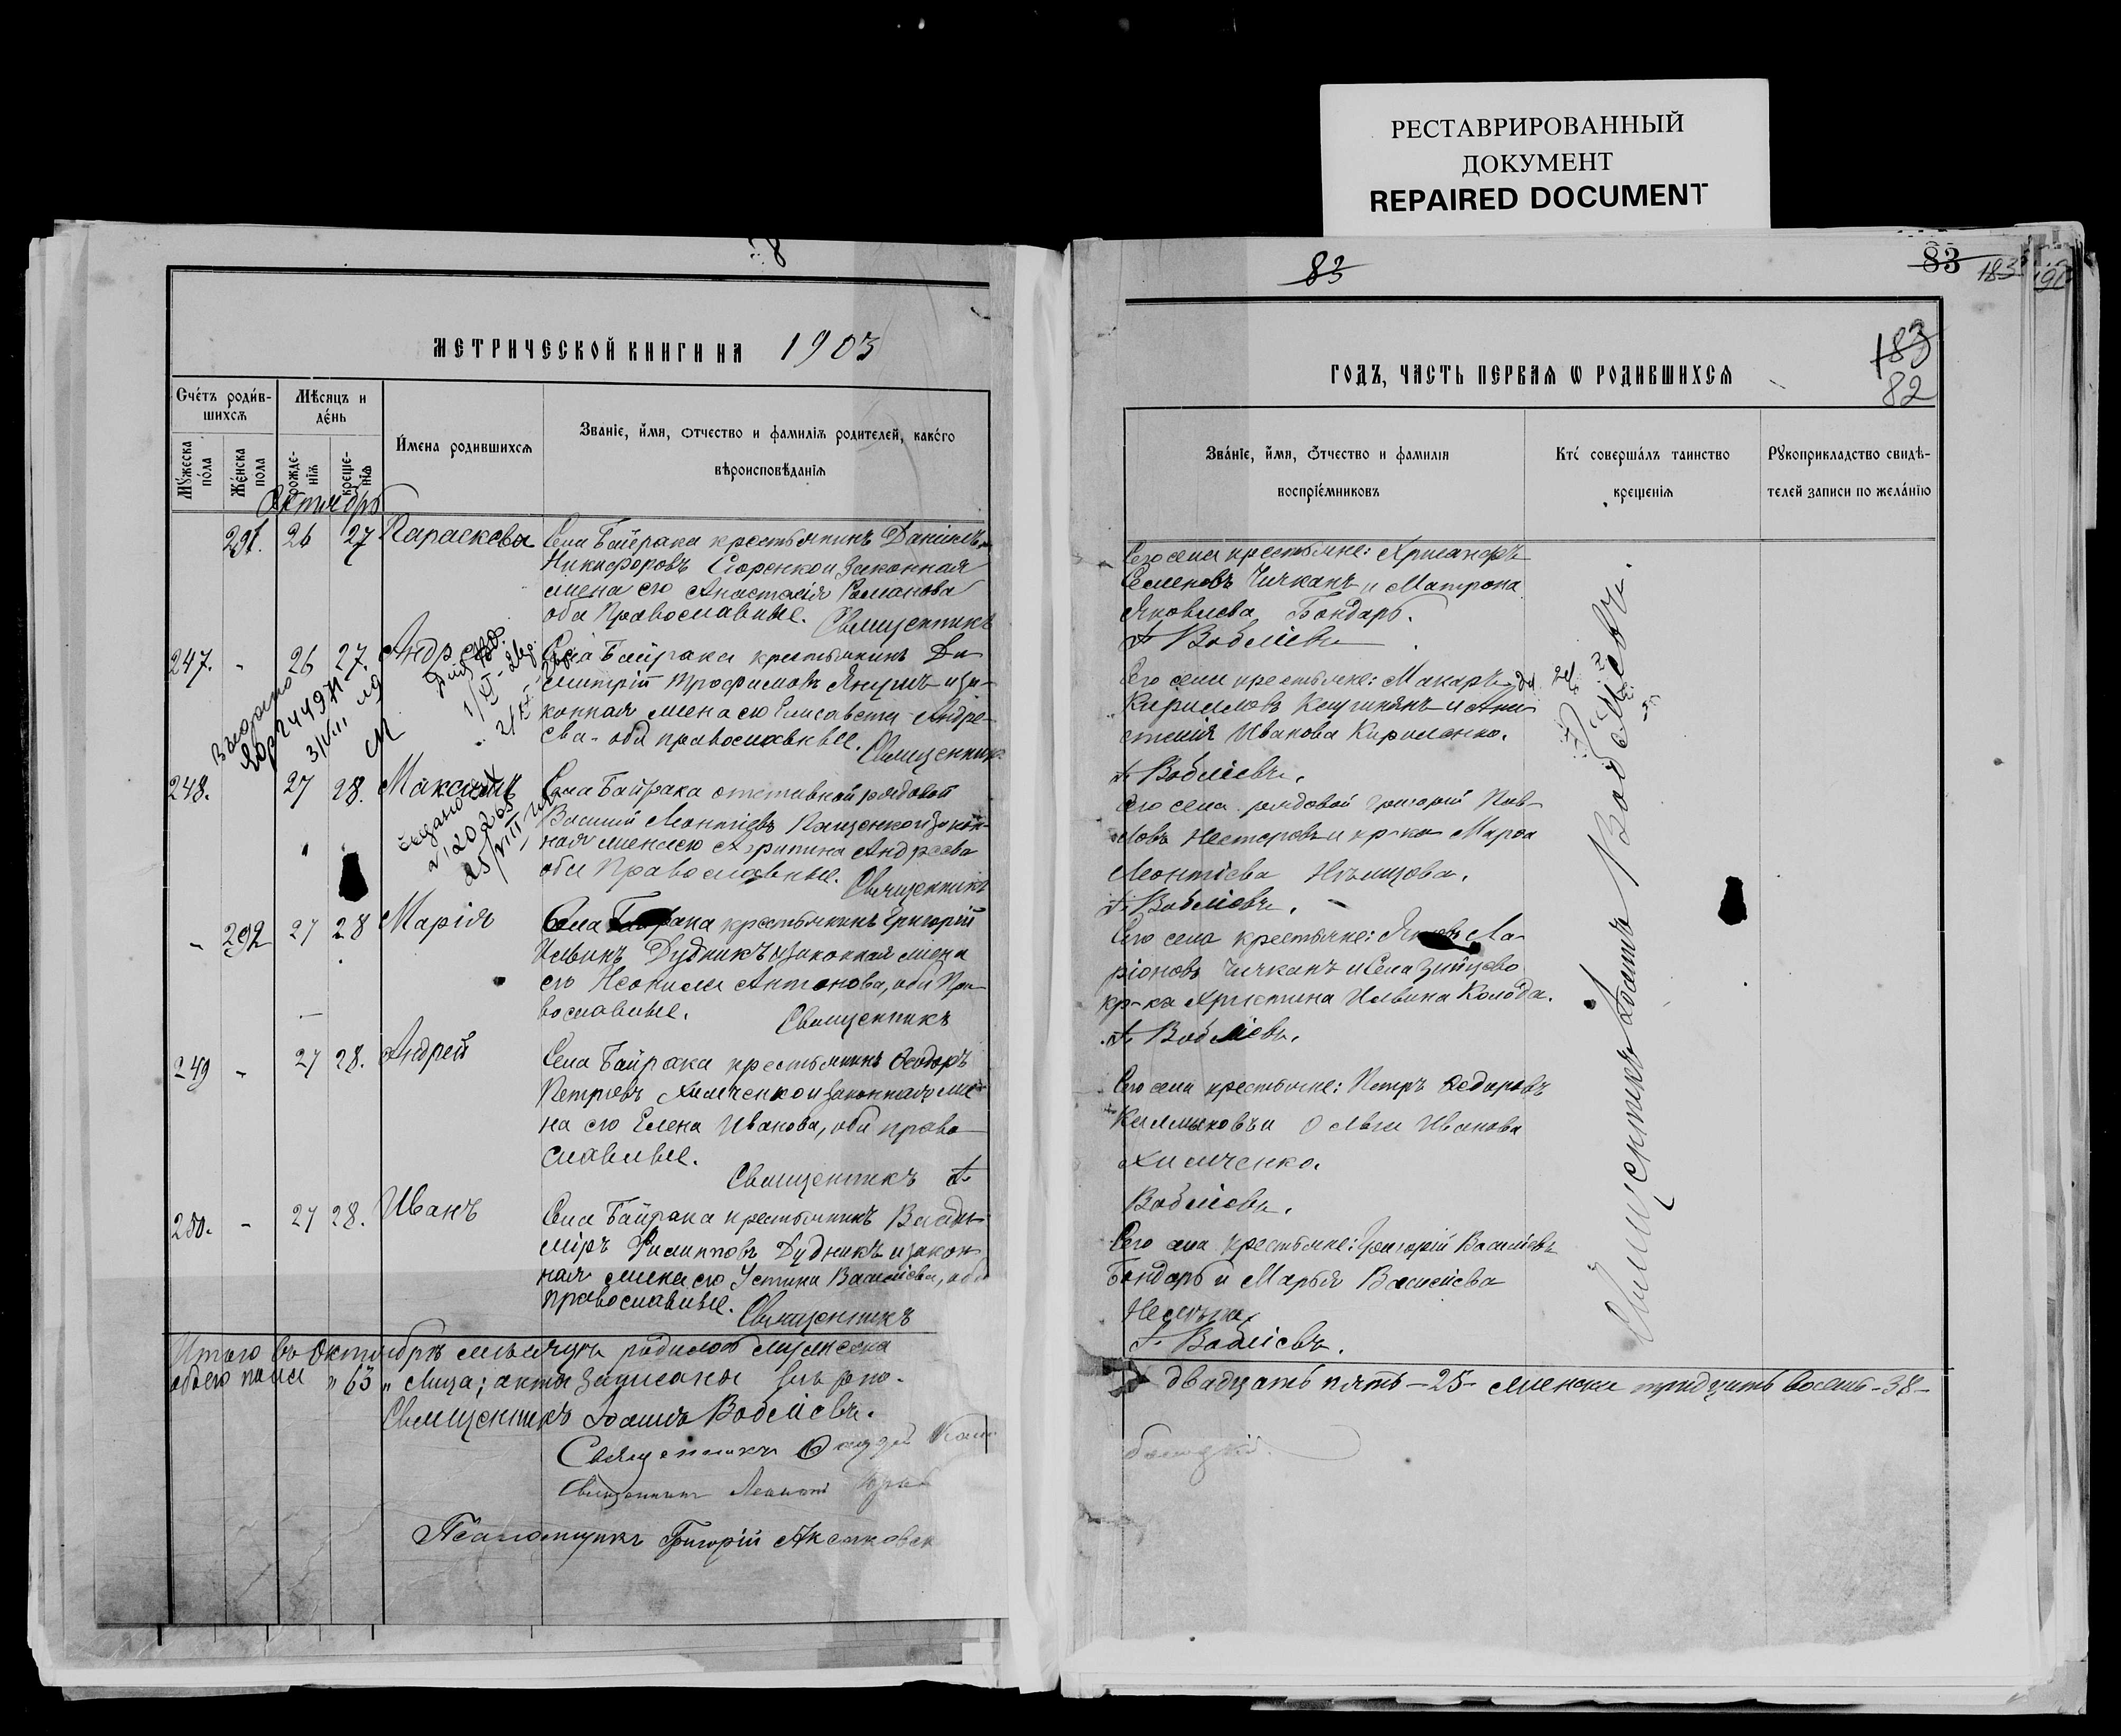 РЕСТАВРИРОВАННЫЙ
ДОКУМЕНТ
REPAIRED DOCUMENT
83
83
183
183
82
МЕТРИЧЕСКОЙ КНИГИ НА 1903
Счётъ роди́в-
шихсѧ
Мѣсяцъ и
де́нь
Мꙋ́жеска
по́ла
Же́нска
пола
рожде-
нїѧ
креще-
нїѧ
И҆мена родившихсѧ
Званїе, и҆́мя, ѻтчество и фамилїѧ родителей, како́го
вѣроисповѣ́данїѧ
Октябрь
291. 26 27 Параскева
Села Байрака крестьянинъ Даніилъ
Никифоровъ Сторенко и законная
жена его Анастасія Романова
оба Православные. Священникъ
247. - 26 27. Андрей
Села Байрака крестьянинъ Ди
митрій Трофимовъ Янушъ и за-
конная жена его Елисавета Андре-
ева - оба православные. Священник
248. 27 28. Максимъ
Села Байрака отставной рядовой
Василій Леонтіевъ Пащенко и закон-
ная жена его Агрипина Андреева
оба Православные. Священникъ
- 292 27 28 Марія
Села Байрака крестьянинъ Григорій
Ильинъ Дудникъ и законная жена
его Неонила Антонова, оба Пра-
вославные. Священникъ
249 - 27 28. Андрей
Села Байрака крестьянинъ Ѳеодоръ
Петровъ Химченко и законная же-
на его Елена Иванова, оба право
славные.
Священникъ І.
250. - 27 28. Иванъ
Села Байрака крестьянинъ Влади-
міръ Филипповъ Дудникъ и закон
ная жена его Устина Василіева, оба
православные. Священникъ
Итого въ Октябрѣ мѣсяцѣ родилось мужеска
обоего пола „ 63 „ лица; акты записаны вѣрно.
Священникъ Іоаннъ Воблієвъ.
Священникъ
Священникъ
Псаломщикъ Григорій
ГОДЪ, ЧАСТЬ ПЕРВАѦ Ѡ РОДИВШИХСѦ
Зва́нїе, и҆́мя, ѻ҆́тчество и фамилїя
воспрїе́мниковъ
Кто̀ соверша́лъ таинство
крещенїѧ
Рꙋкоприкладство свидѣ-
телей записи по жела́нїю
Сего села крестьяне: Хрисанфъ
Семеновъ Чичканъ и Матрона
Яковлева Бондарь.
І. Воблієвъ
Сего села крестьяне: Макаръ
Кирилловъ и Ана
стасія Ивановна Кириленко.
І. Воблієвъ.
Сего села рядовой Григорій Пав-
ловъ Нестеровъ и кр-ка Марѳа
Леонтіева Нѣмцова.
І. Воблієвъ.
Сего села крестьяне: Яковъ Ла-
ріоновъ Чичканъ и села Зайцево
кр-ка Христина Ильина Колода.
І. Воблієвъ.
Сего села крестьяне: Петръ Ѳедоровъ
Калмыковъ и Ольга Иванова
Химченко.
Воблієвъ.
Сего села крестьяне: Григорій Василіевъ
Бондарь и Марья Василіева
І. Воблієвъ.
Священникъ Іоаннъ Воблієвъ.
двадцать пять - 25 - женска тридцать восемь - 38 -